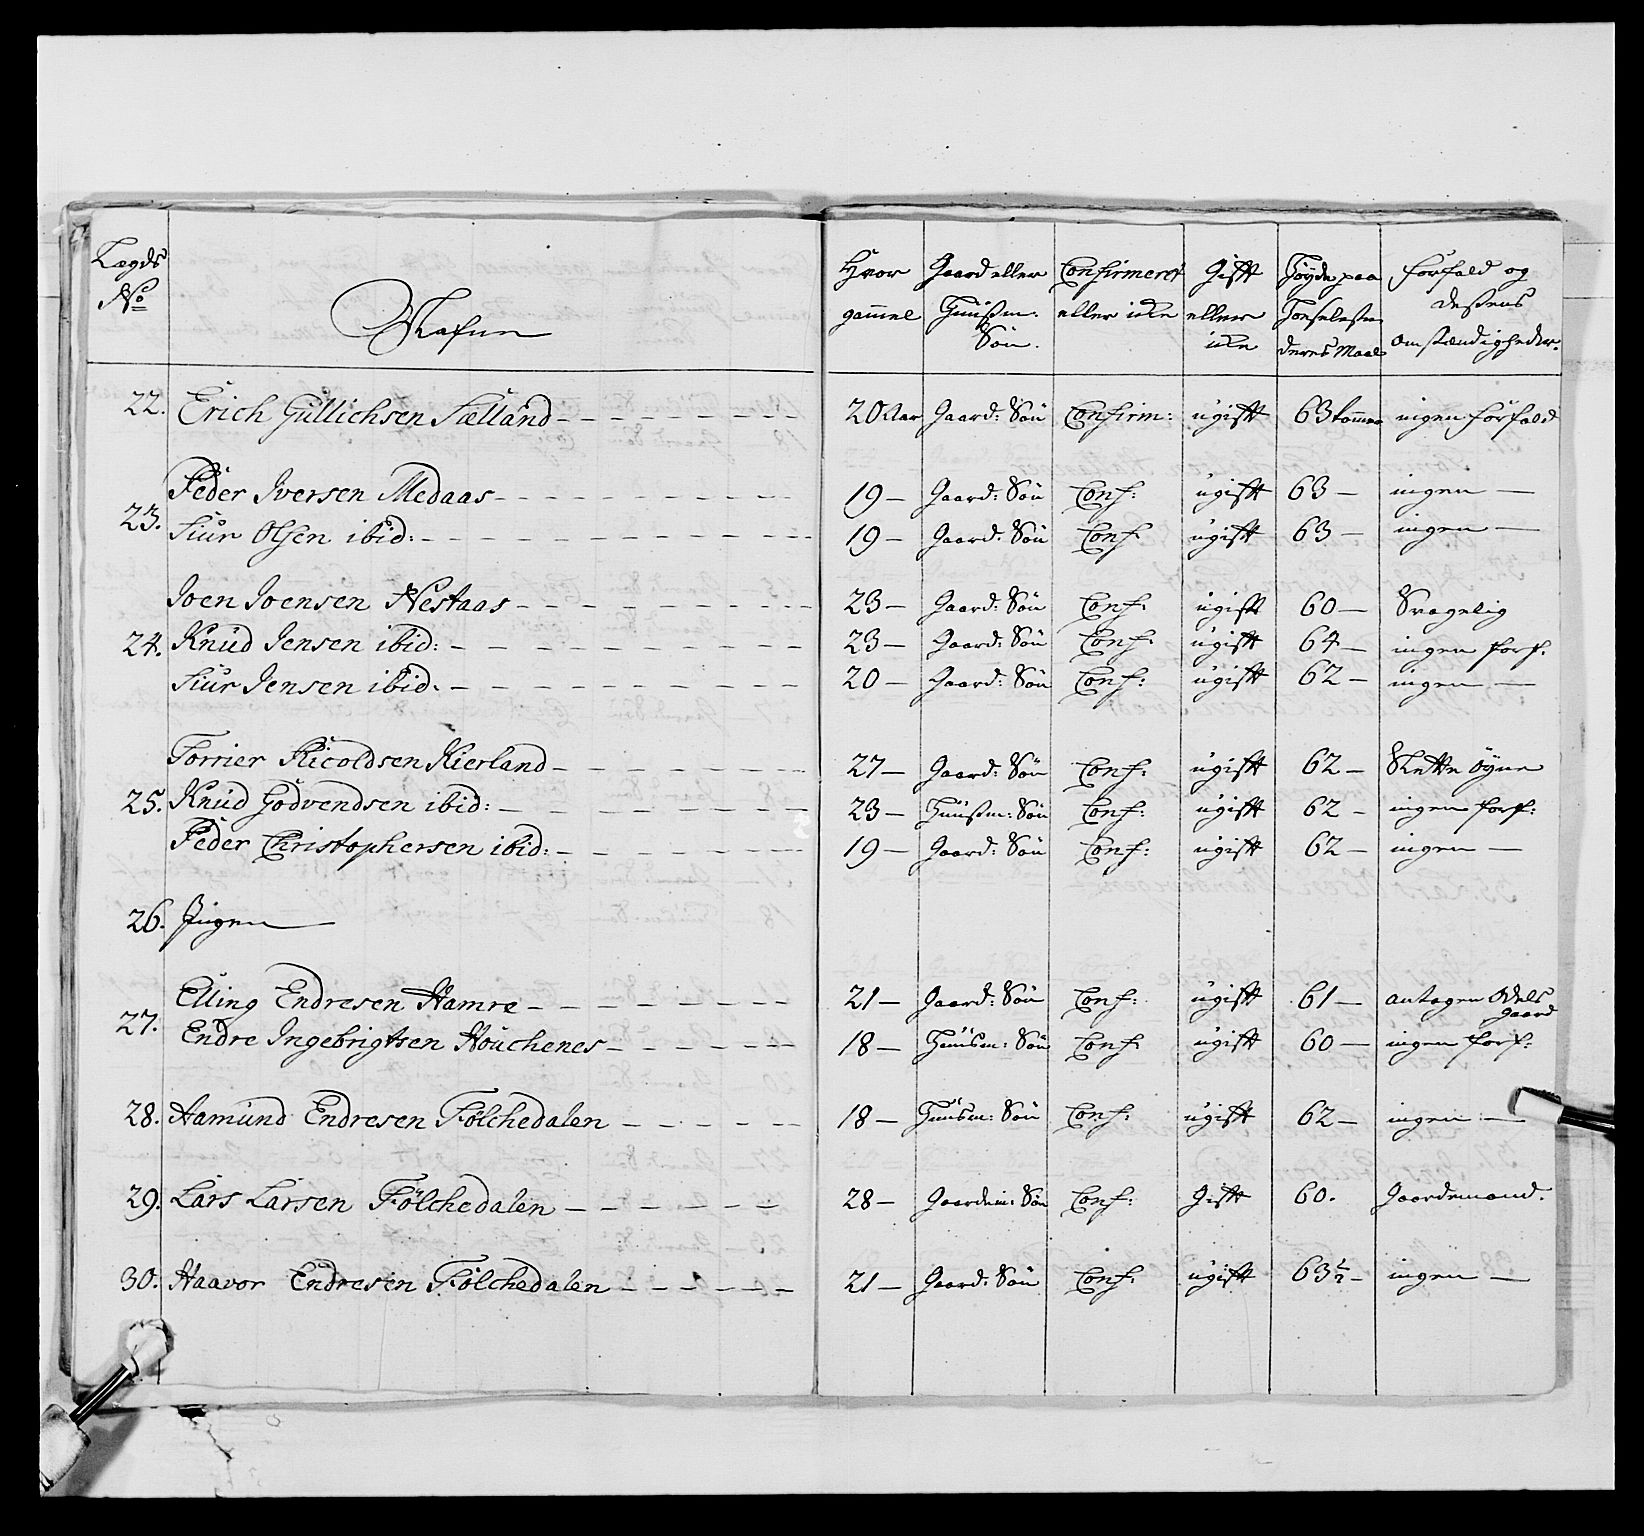 Lægds No
Nafne
Hvor gammel
Gaard eller Huusm: Søn.
Confirmeret eller icke
Gifft eller icke
Høyde paa deres Maal
Forfald og desens omstændigheder.
22. Erich Gullichsen Sælland - - - - - - 20 Aar Gaard: Søn Confirm: ugifft 63 tomme ingen forfald
Peder Iversen Medaas - - - - - - 19 — Gaard: Søn Conf: ugifft 63 — ingen —
23. Siur Olsen ibid: - - - - - - 19 — Gaard: Søn Conf: ugifft 63 — ingen —
Joen Joensen Nestaas - - - - - - 23 — Gaard: Søn Conf: ugifft 60 — Svagelig
24. Knud Jensen ibid: - - - - - - 23 — Gaard: Søn Conf: ugifft 64 — ingen forf:
Siur Jensen ibid: - - - - - - 20 — Gaard: Søn Conf: ugifft 62 — ingen —
Torrier Ricoldsen Kierland - - - - - - 27 — Gaard: Søn Conf: ugifft 62 — Slette Øyne
25. Knud Godvendsen ibid: - - - - - - 23 — Huusm: Søn Conf: ugifft 62 — ingen forf:
Peder Christophersen ibid: - - - - - - 19 — Gaard: Søn Conf: ugifft 62 — ingen —
26. Ingen
Elling Endresen Hamre - - - - - - 21 — Gaard: Søn Conf: ugifft 61 — antagen Odels Gaard
27. Endre Ingebrigtsen Houchenes - - - - - 18 — Huusm: Søn Conf: ugifft 60 — ingen forf:
28. Aamund Endresen Følchedalen - - - - - 18 — Huusm: Søn Conf: ugifft 62 — ingen —
29. Lars Larsen Følchedalen - - - - - - 28 — Gaardm: Søn Conf: Gifft 60. Gaardemand.
30. Haavor Endresen Følchedalen - - - - - 21 — Gaard: Søn Conf: ugifft 63 ½ — ingen —